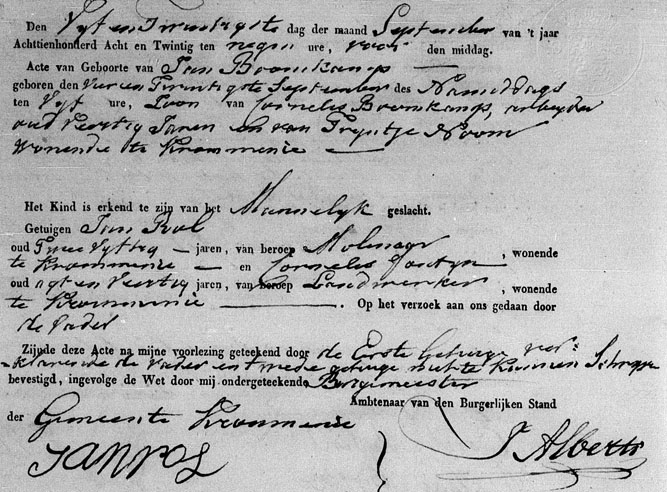 Den Vyf en Twintigste dag der maand September van 't jaar
Achttienhonderd Acht en Twintig ten negen ure, voor den middag.
Acte van Geboorte van Jan Boomkamp
geboren den Vier en Twintigste September des Namiddags
ten Vyf ure, Zoon van Cornelis Boomkamp, arbeyder
oud Veertig Jaren en van Tryntje Noom
Wonende te Krommenie
Het Kind is erkend te zijn van het Mannelyk geslacht.
Getuigen Jan Pol
oud Twee Vyftig jaren, van beroep Molenaar, wonende
te Krommenie en Cornelis
oud agt en Veertig jaren, van beroep Landwerker, wonende
te Krommenie. Op het verzoek aan ons gedaan door
de Vader
Zijnde deze Acte na mijne voorlezing geteekend door de Erste Getuige ver:
klarende de Vader en twede getuige niet te Kunnen Schryve
bevestigd, ingevolge de Wet door mij ondergeteekende Burgemeester
Ambtenaar van den Burgerlijken Stand
der Gemeente Krommenie
JAN POL
Alberts